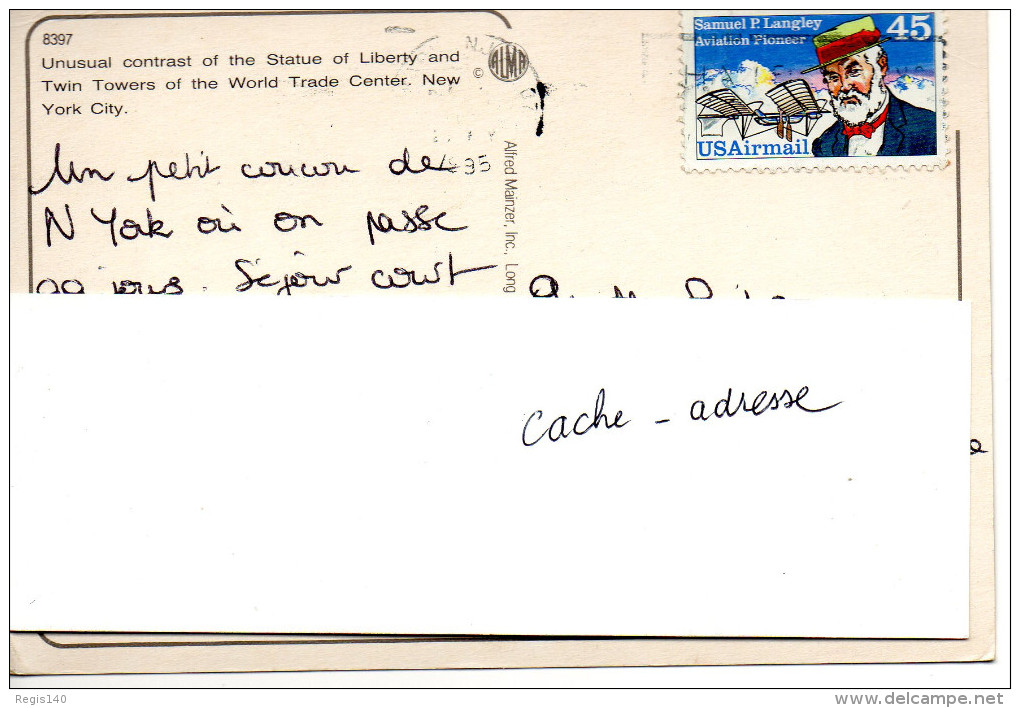 8397
Unusual contrast of the Statue of Liberty and
Twin Towers of the World Trade Center. New
York City.
Un petit coucou de
N York où on passe
jours. Séjour court
© ALMA
Alfred Mainzer, Inc., Long
1995
Samuel P. Langley
Aviation Pioneer
45
USAirmail
cache - adresse
Regis140
www.delcampe.net